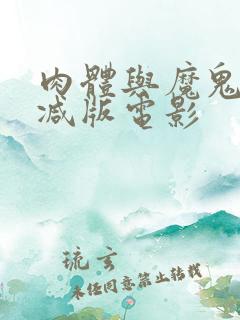 肉體與魔鬼
減版電影
琉玄
未经同意禁止转载